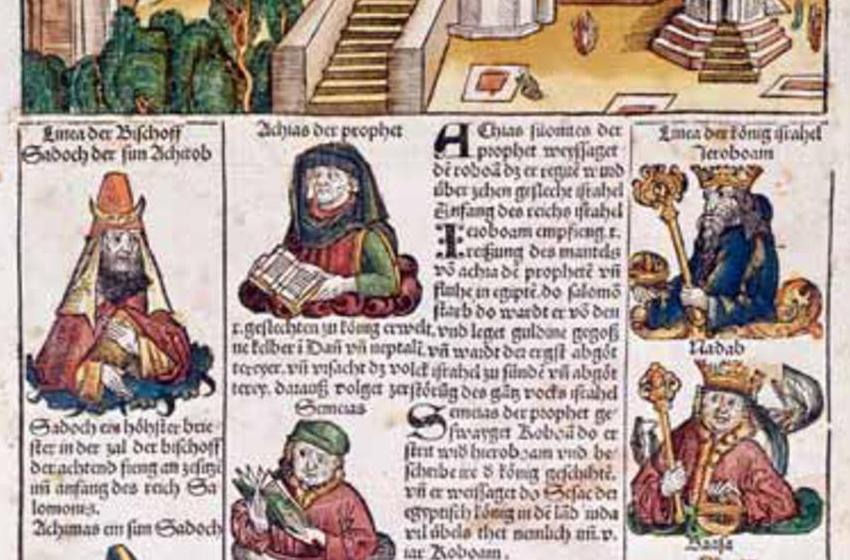 Linea der Bischoff
Sadoch der sun Achitob
Sadoch ein höhster brie
ster in der zal der bischoff
der achtend fieng an zesitzē
im anfang des reich Sa
lomonis.
Achimas ein sun Sadoch
Achias der prophet
AChias silonites der
prophet weyssaget
dē roboā dz er regirē wurd
über zehen geslecht israhel
Anfang des reichs israhel
Ieroboam empfieng .x.
reißung des mantels
vō achia dē prophetē vñ
fluhe in egiptē. do salomō
starb do wardt er vō den
x. geslechten zu könig erwelt. vnd leget guldine gegoß
ne kelber ī Dan vñ neptali. vñ wardt der ergst abgöt
tereyer. vñ vrsacht dz volck israhel zu sündē vñ abgöt
terey. darauß volget zerstörūg des gātz volcks israhel
Semeias
Semeias der prophet ge
swayget Roboā do er
strit wid hieroboam vnd be
schribe ire d könig geschihtē.
vñ er weissaget dz Sesac der
egyptisch könig in dē lād iuda
vil übels thet nemlich im .v.
iar Roboam.
Linea der könig israhel
Ieroboam
Nadab
Baasa